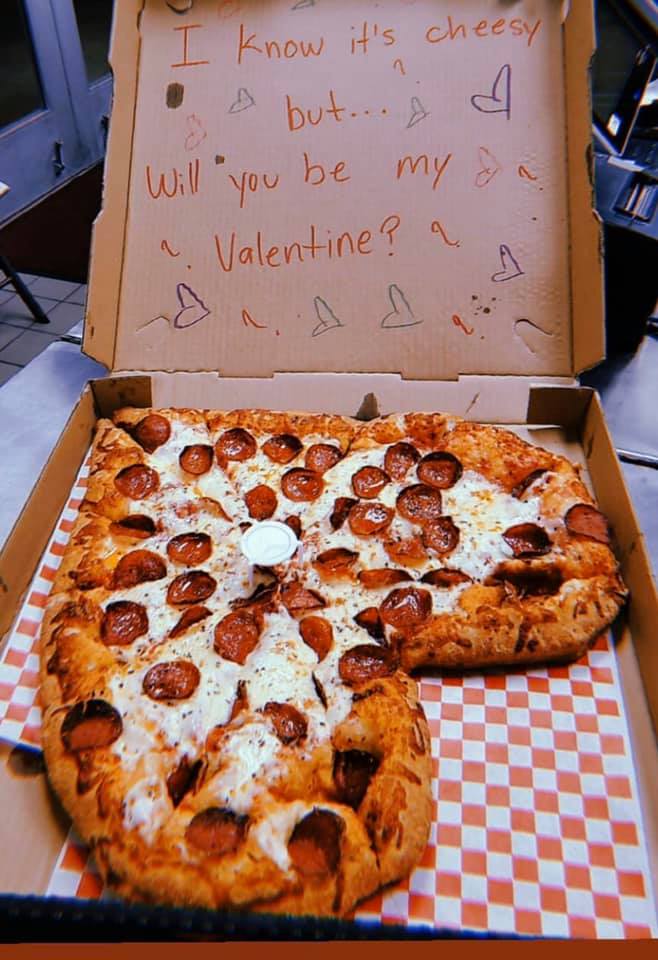 I know it's cheesy
but...
Will you be my
Valentine?